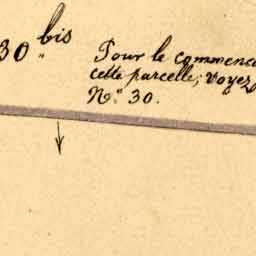 30 bis
Pour le commenc
cette parcelle, voyez
N.º 30.